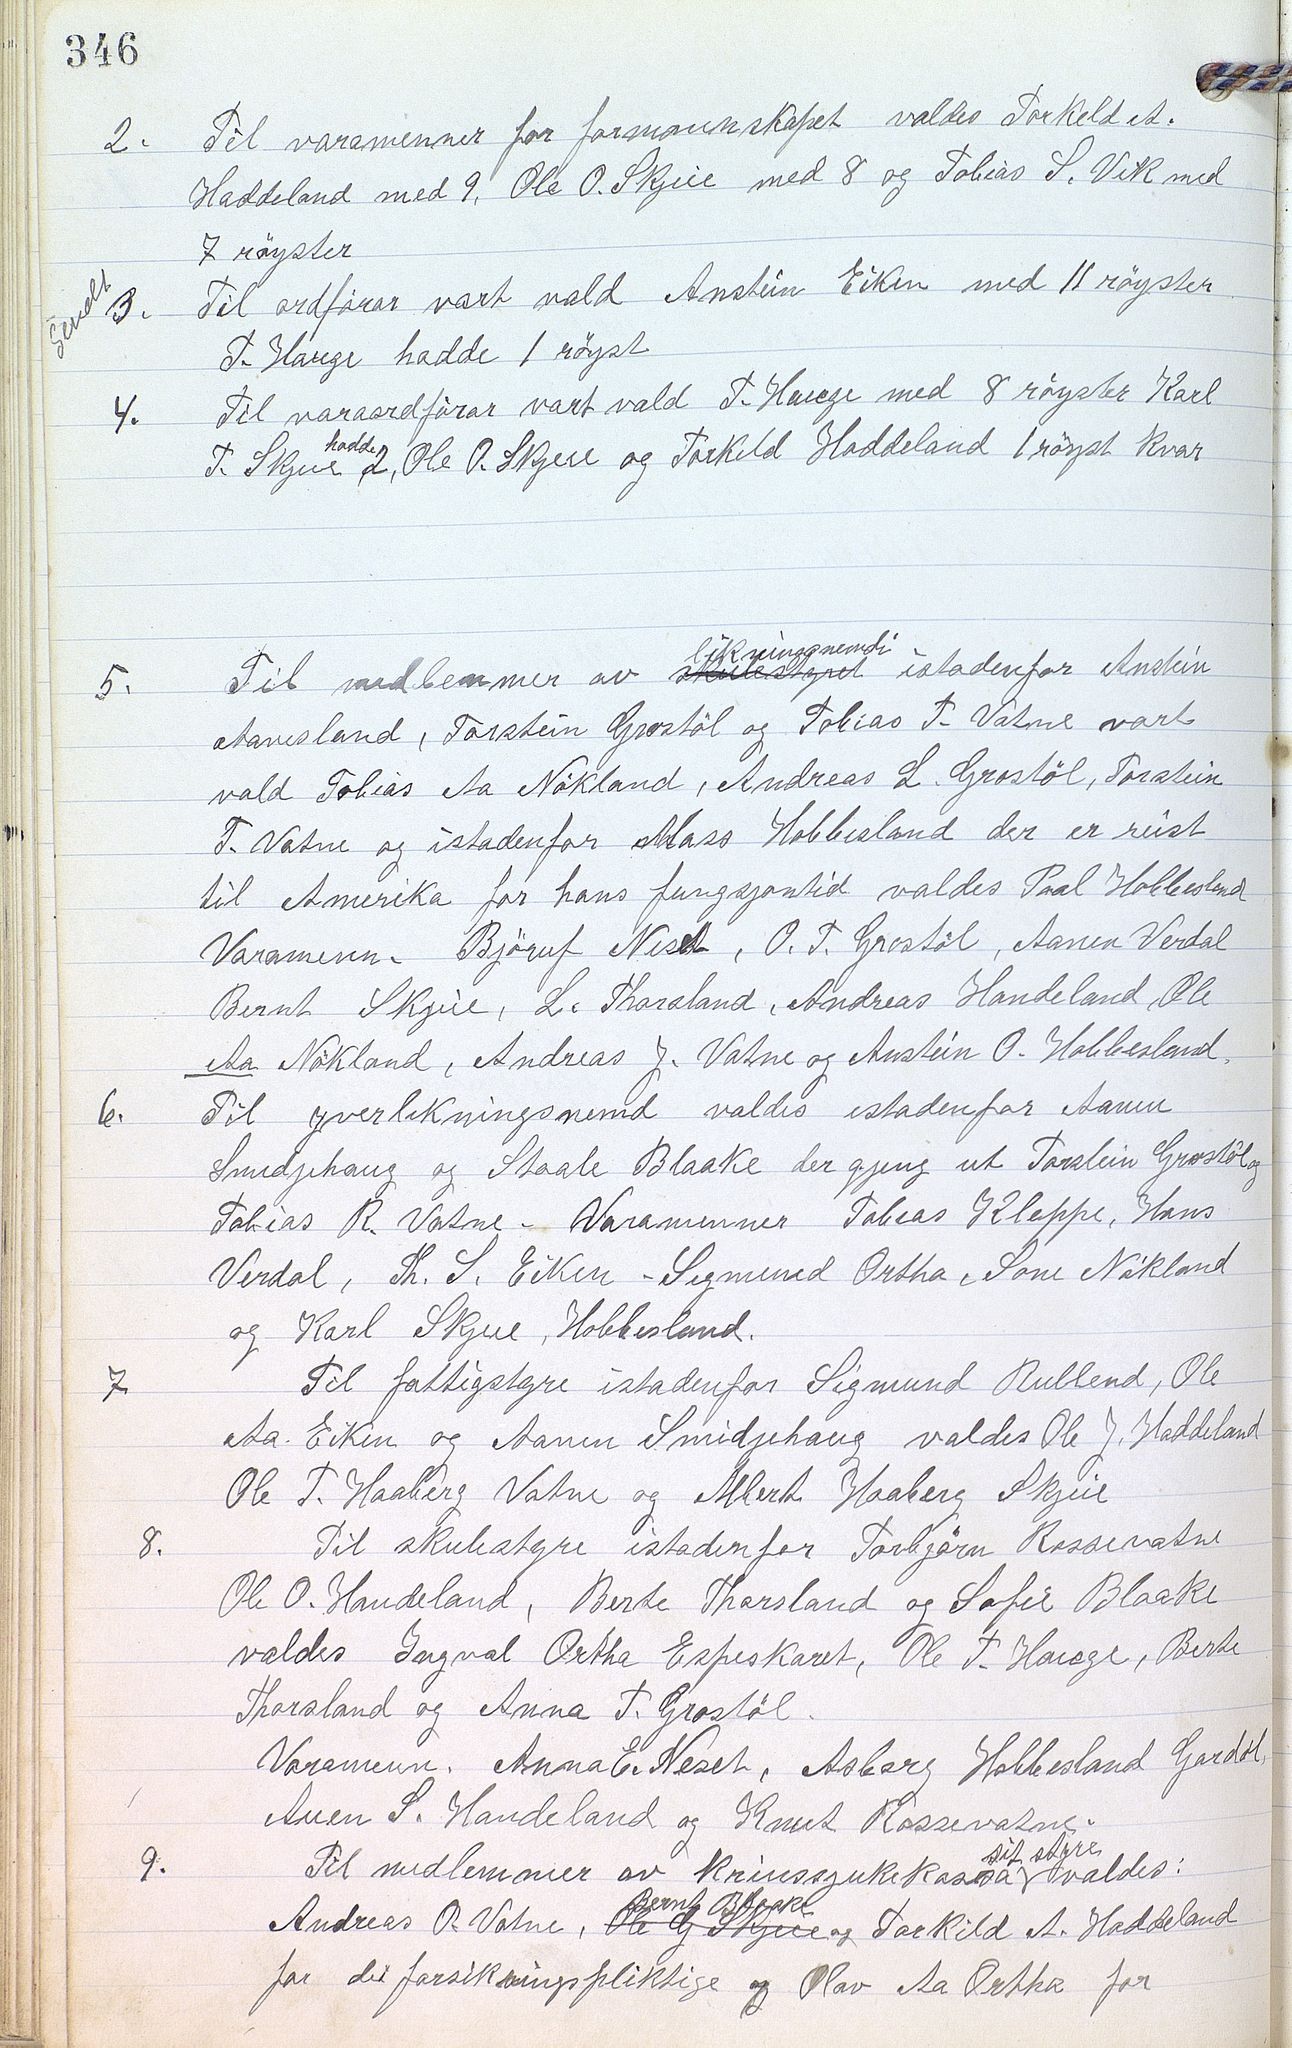 346
2. Til varamenner for formannskapet valdes Torkeld A.
Haddeland med 9, Ole O. Skjeie med 8 og Tobias S. Vik med
7 röyster
Sendt
3. Til ordförar vart vald Anstein Eiken med 11 röyster
T. Hauge hadde 1 röyst
4. Til varaordförar vart vald T. Hauge med 8 röyster Karl
T. Skjeie hadde 2, Ole O. Skjeie og Torkeld Haddeland 1 röyst kvar
5. Til medlemmer av skulestyret likningsnemdi istadenfor Anstein
Aavesland, Torstein Grostöl og Tobias T. Vatne vart
vald Tobias Aa Nökland, Andreas L. Grostöl, Torstein
T. Vatne og istadenfor Mass Hobbesland der er reist
til Amerika for hans fungsjontid valdes Paal Hobbesland
Varamenn. Björuf Neset, O. T. Grostöl, Aanen Verdal
Bernt Skjeie, L. Thorsland, Andreas Handeland, Ole
Aa Nökland, Andreas J. Vatne og Anstein O. Hobbesland.
6. Til yverlikningsnemd valdes istadenfor Aanen
Smidjehaug og Staale Blaake der gjeng ut Torstein Grostöl og
Tobias R. Vatne - Varamenner Tobias Kleppe, Hans
Verdal, Th. S. Eiken - Sigmund Ortha, Sone Nökland
og Karl Skjeie, Hobbesland.
7 Til fattigstyre istadenfor Sigmund Rullend, Ole
Aa. Eiken og Aanen Smidjehaug valdes Ole J. Haddeland
Ole T. Haaberg Vatne og Albert Haaberg Skjeie
8. Til skulestyre istadenfor Torbjörn Rossevatne
Ole O. Handeland, Berte Thorsland og Sofie Blaake
valdes Ingval Ortha Espeskaret, Ole T. Hauge, Berte
Thorsland og Anna T. Grostöl.
Varamenn. Anna E. Neset, Asborg Hobbesland Gardöl,
Anen S. Handeland og Knut Rossevatne.
9. Til medlemmer av krinssjukekassa sit styre valdes:
Andreas O. Vatne, Ole G Skjeie Bernt Blaake og Torkild A. Haddeland
for dei forsikringspliktige og Olav Aa Ortha for